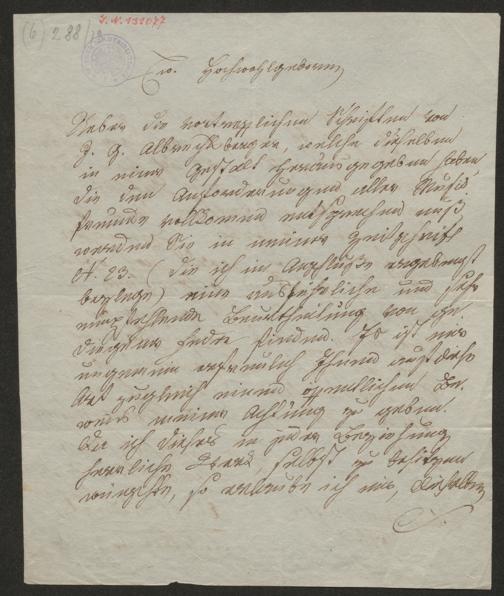 (6) 288/29
I.N. 131077
Ew. Hochwohlgeboren
Ueber die vortrefflichen Schriften von
J. G. Albrechtsberger, welche dieselben
in einer Gestalt herausgegeben haben,
die den Anforderungen aller Musik
freunde vollkommen entsprechen muß
werden Sie in meiner Zeitschrift
N. 23. (die ich im Anschluße ergebenst
beylege) eine ausführliche und sehr
empfehlende Beurtheilung von ge
diegener Feder finden. Es ist mir
ungemein erfreulich Ihnen auf diese
Art zugleich einen öffentlichen Be
weis meiner Achtung zu geben.
Da ich dieses in jeder Beziehung
herrliche Werk, selbst zu besitzen
wünschte, so erlaube ich mir, dieselben